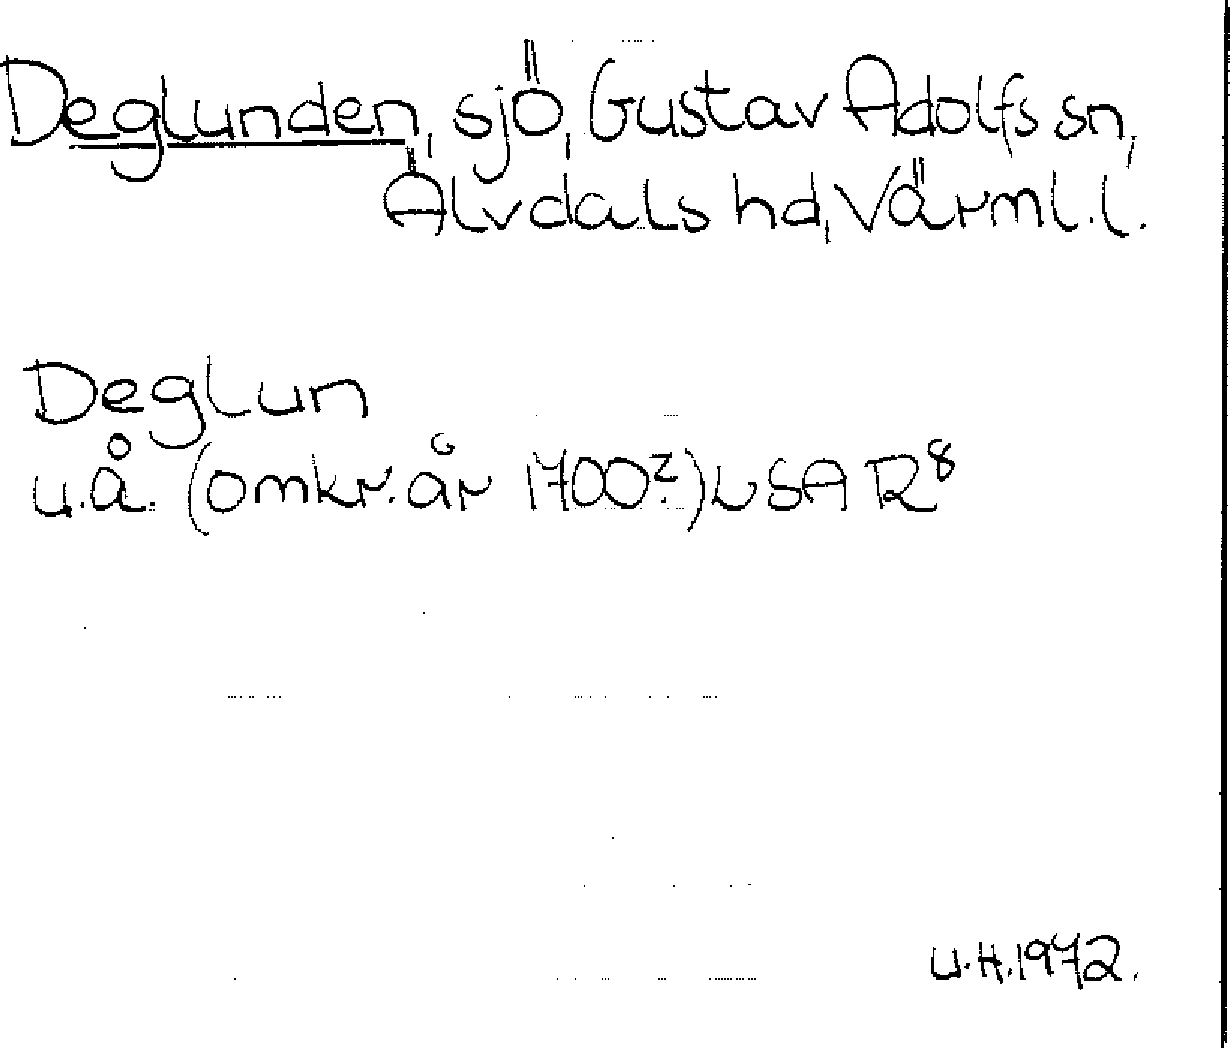 Deglunden, sjö, Gustav Adolfs sn,
Älvdals hd, Värml.l.
Deglun
u.å. (omkr. år 1700?) LSA R8
U.H. 1972.